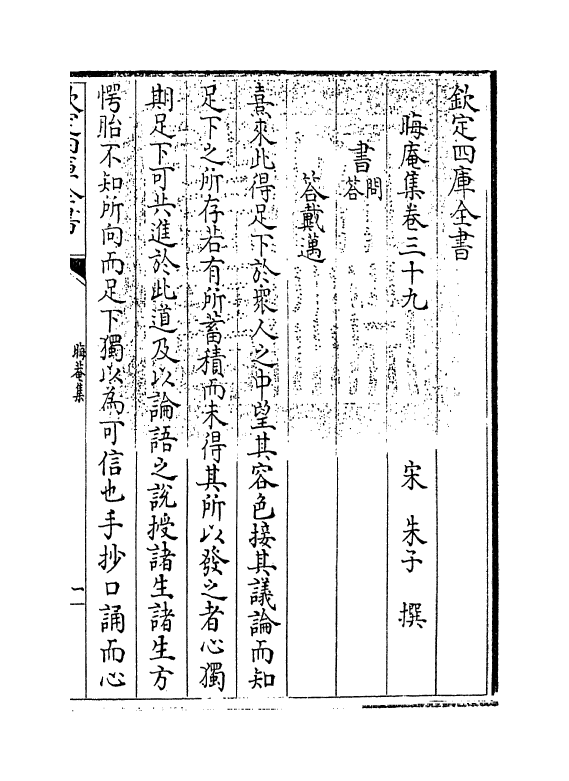 欽定四庫全書
晦庵集卷三十九
宋 朱子 撰
書
問答
答戴邁
熹來此得足下於衆人之中望其容色接其議論而知
足下之所存若有所蓄積而未得其所以發之者心獨
期足下可共進於此道及以論語之說授諸生諸生方
愕眙不知所向而足下獨以為可信也手抄口誦而心
欽定四庫全書
晦菴集
一